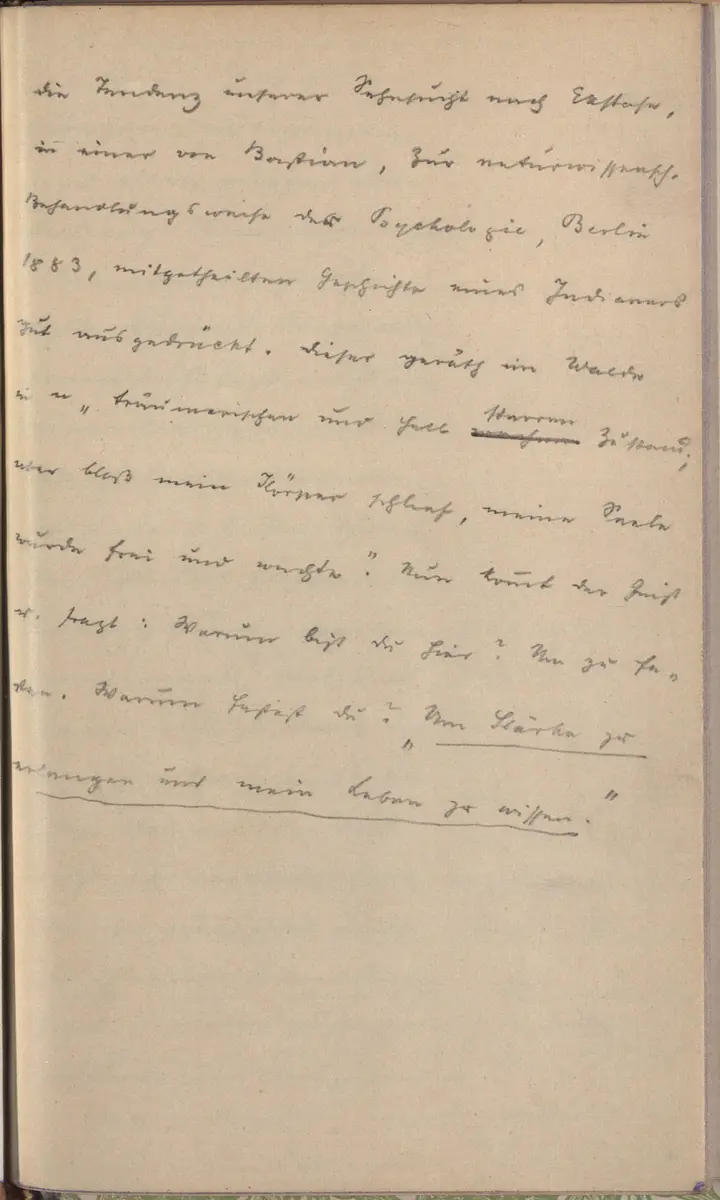 die Tendenz unserer Sehnsucht nach Ekstase,
in einer von Bastian, Zur naturwissensch.
Behandlungsweise der Psychologie, Berlin
1883, mitgetheilten Geschichte eines Indianers
gut ausgedrückt. Dieser geräth im Walde
in „träumerischen und halb starren Zustand;
aber bloß mein Körper schlief, meine Seele
wurde frei und wachte". Nun kom̅t der Geist
u. fragt: Warum bist du hier? Um zu fa-
sten. Warum fastest du? „Um Stärke zu
erlangen und mein Leben zu wissen."